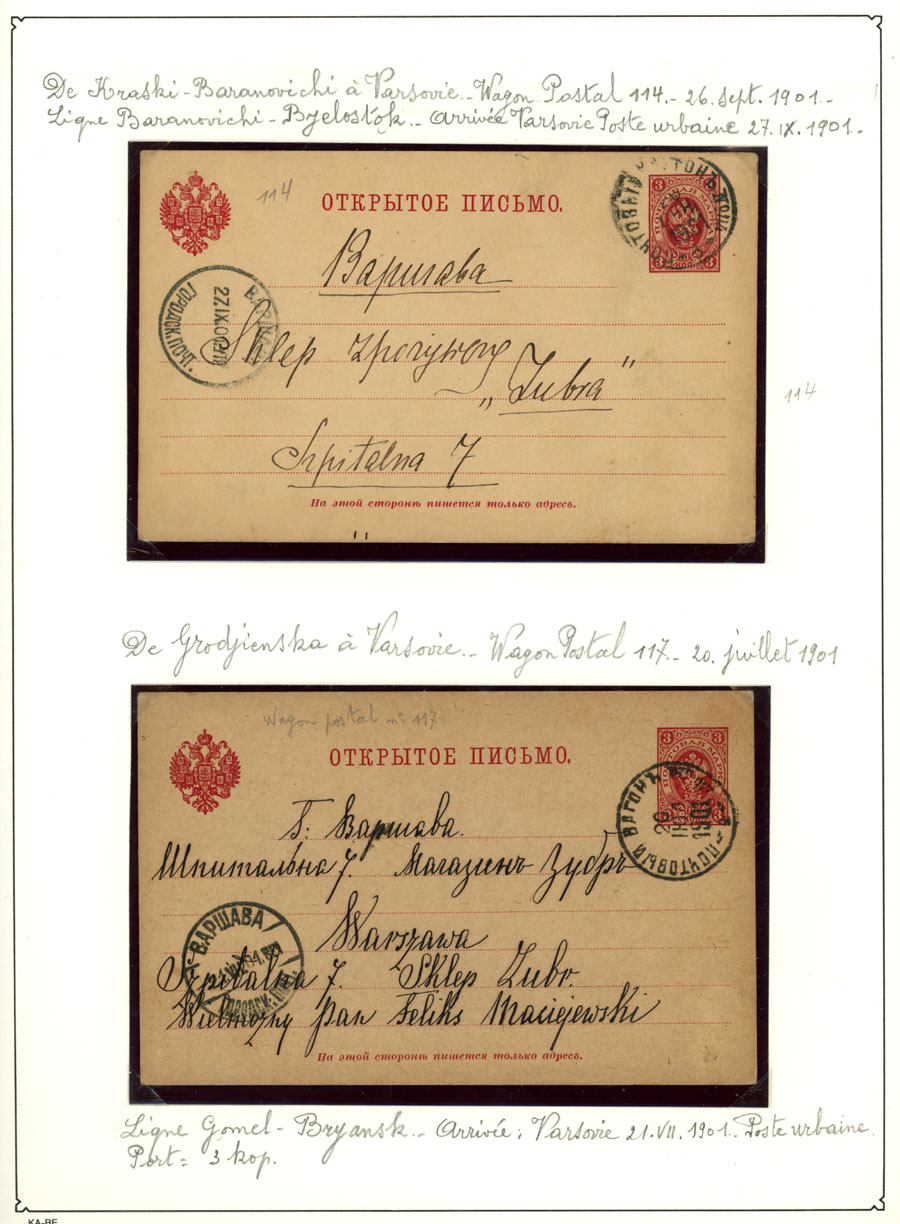 De Kraski - Baranovichi à Varsovie. - Wagon Postal 114. - 26. sept. 1901. -
Ligne Baranovichi - Byelostok. - Arrivée Varsovie Poste urbaine 27. IX. 1901. -
114
ОТКРЫТОЕ ПИСЬМО.
3 3
ПОЧТОВАЯ МАРКА
Варшава
27.IX.01
ГОРОДСК.
Sklep spożywczy
„Zubra"
114
Szpitalna 7
На этой сторонѣ пишется только адресъ.
De Grodjienska à Varsovie. - Wagon Postal 117. - 20. juillet 1901
Wagon postal nº 117
ОТКРЫТОЕ ПИСЬМО.
3 3
ПОЧТОВАЯ МАРКА
ПОЧТОВЫЙ ВАГОНЪ
20
1901
Г: Варшава.
Шпитальна 7. Магазинъ Зубръ
ВАРШАВА
Warszawa
Szpitalna 7. Sklep Zubr.
Wielmożny Pan Feliks Maciejewski
На этой сторонѣ пишется только адресъ.
Ligne Gomel - Bryansk. - Arrivée: Varsovie 21. VII. 1901. Poste urbaine.
Port = 3 kop.
KA-BE